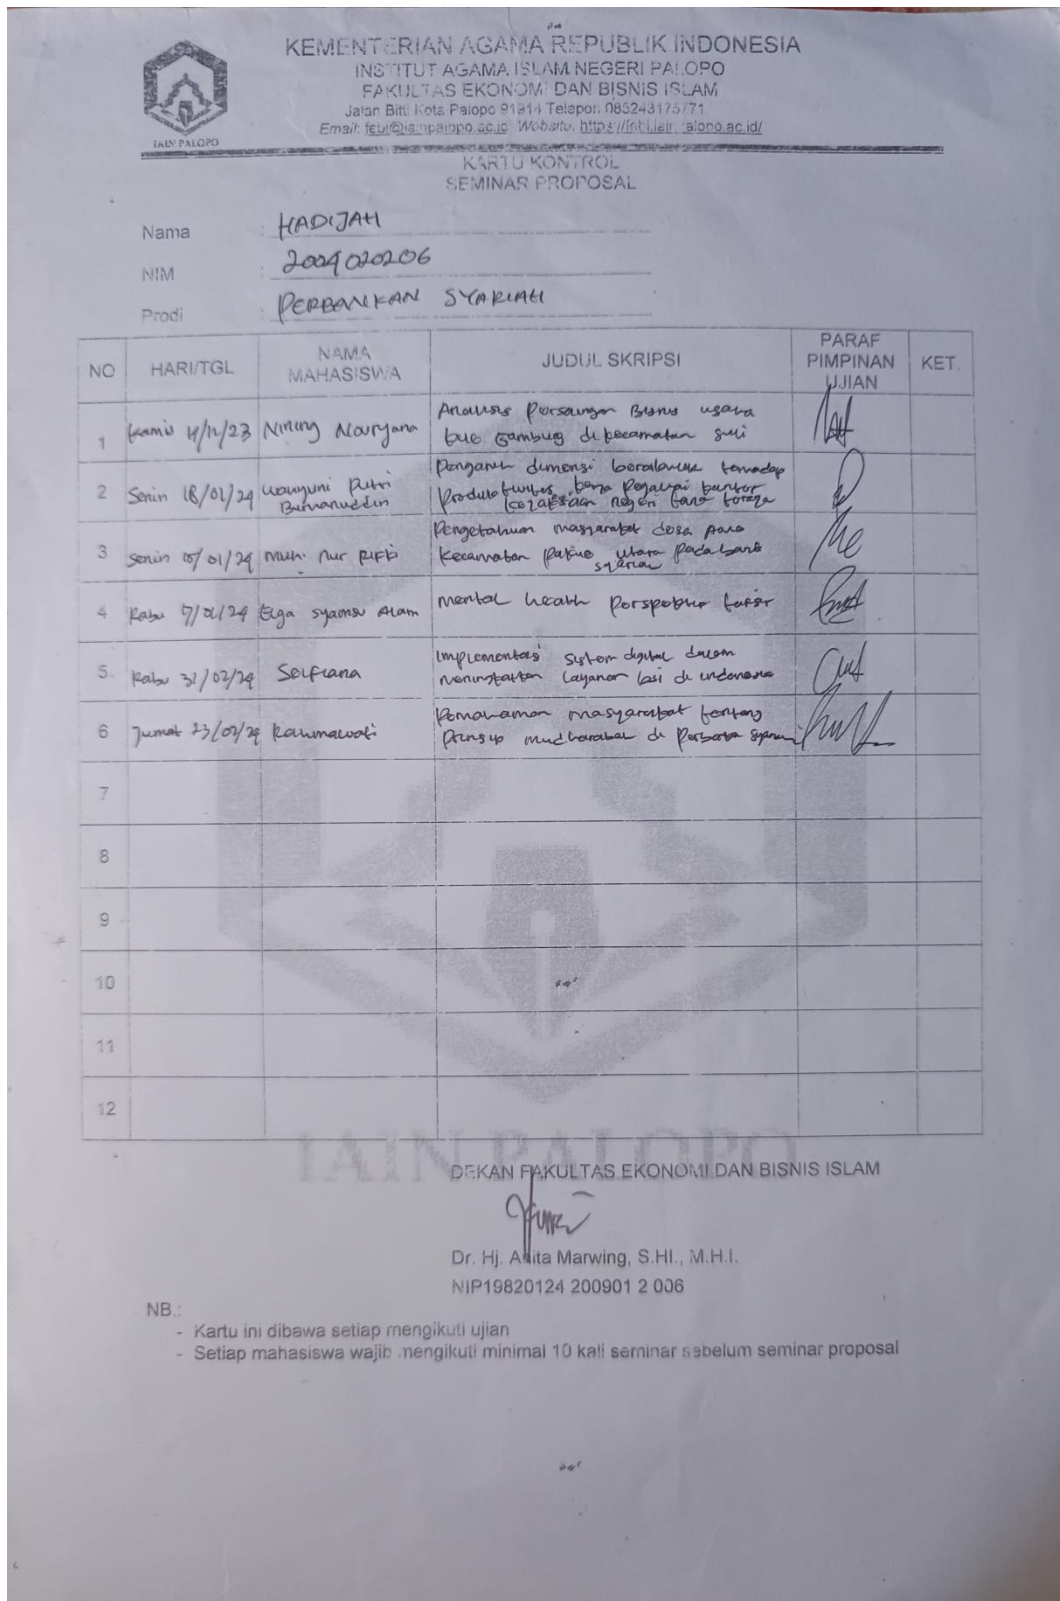 KEMENTERIAN AGAMA REPUBLIK INDONESIA
INSTITUT AGAMA ISLAM NEGERI PALOPO
FAKULTAS EKONOMI DAN BISNIS ISLAM
Jalan Bitti Kota Palopo 91914 Telepon
Email: febi@iainpalopo.ac.id Website: https://febi.iainpalopo.ac.id/
IAIN PALOPO
KARTU KONTROL
SEMINAR PROPOSAL
Nama : HADIJAH
NIM : 2004020206
Prodi : PERBANKAN SYARIAH
NO HARI/TGL NAMA MAHASISWA JUDUL SKRIPSI PARAF PIMPINAN UJIAN KET.
1 Kamis Nining Analisis Persaingan Bisnis usaha
di kecamatan suli
2 Senin 18/01/24 wahyuni Putri Burhanuddin Pengaruh dimensi terhadap
Produktivitas kerja Pegawai kantor
kejaksaan negeri tana toraja
3 Senin muh. nur Pengetahuan masyarakat desa
kecamatan utara pada bank
syariah
4 Rabu Elga syamsu Alam mental health perspektif tafsir
5. Rabu 31/02/24 Selfiana Implementasi sistem digital dalam
meningkatkan layanan di indonesia
6 Jumat 23/02/24 Rahmawati Pemahaman masyarakat tentang
Prinsip mudharabah di
7
8
9
10
11
12
IAIN PALOPO
DEKAN FAKULTAS EKONOMI DAN BISNIS ISLAM
Dr. Hj. Anita Marwing, S.HI., M.H.I.
NIP19820124 200901 2 006
NB.:
- Kartu ini dibawa setiap mengikuti ujian
- Setiap mahasiswa wajib mengikuti minimal 10 kali seminar sebelum seminar proposal